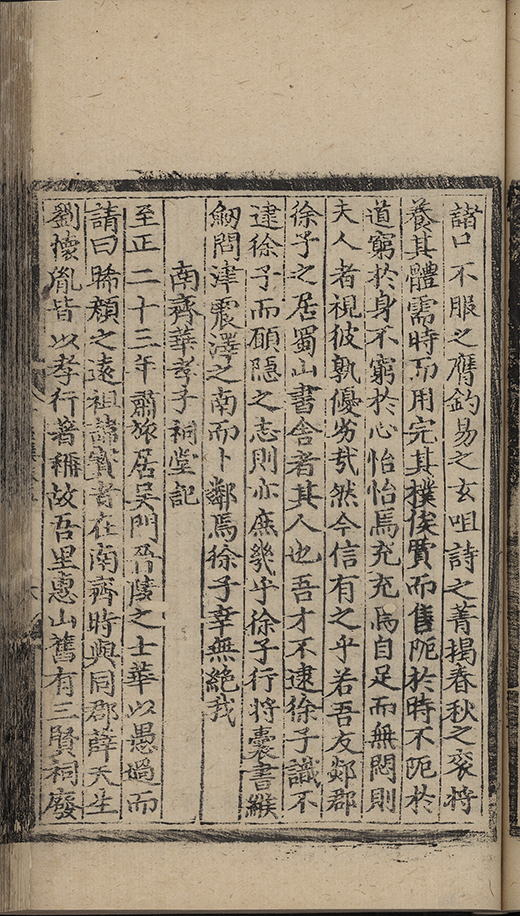 諸口不服之膺釣易之玄咀詩之菁揭春秋之衮将
養其體需時而用完其樸俟賈而售阨於時不阨於
道窮於身不窮於心怡怡焉充充焉自足而無悶則
夫人者視彼孰優劣哉然今信有之乎若吾友郯郡
徐子之居蜀山書舎者其人也吾才不逮徐子識不
逮徐子而願隐之志則亦庶幾乎徐子行将囊書緱
劒問津震澤之南而卜鄰焉徐子幸無絶我
南齊華孝子祠堂記
至正二十三年肅旅居吳門晉陵之士華以愚過而
請曰晞顔之遠祖諱寳者在南齊時與同郡薛天生
劉懷胤皆以孝行著稱故吾里惠山舊有三賢祠廢